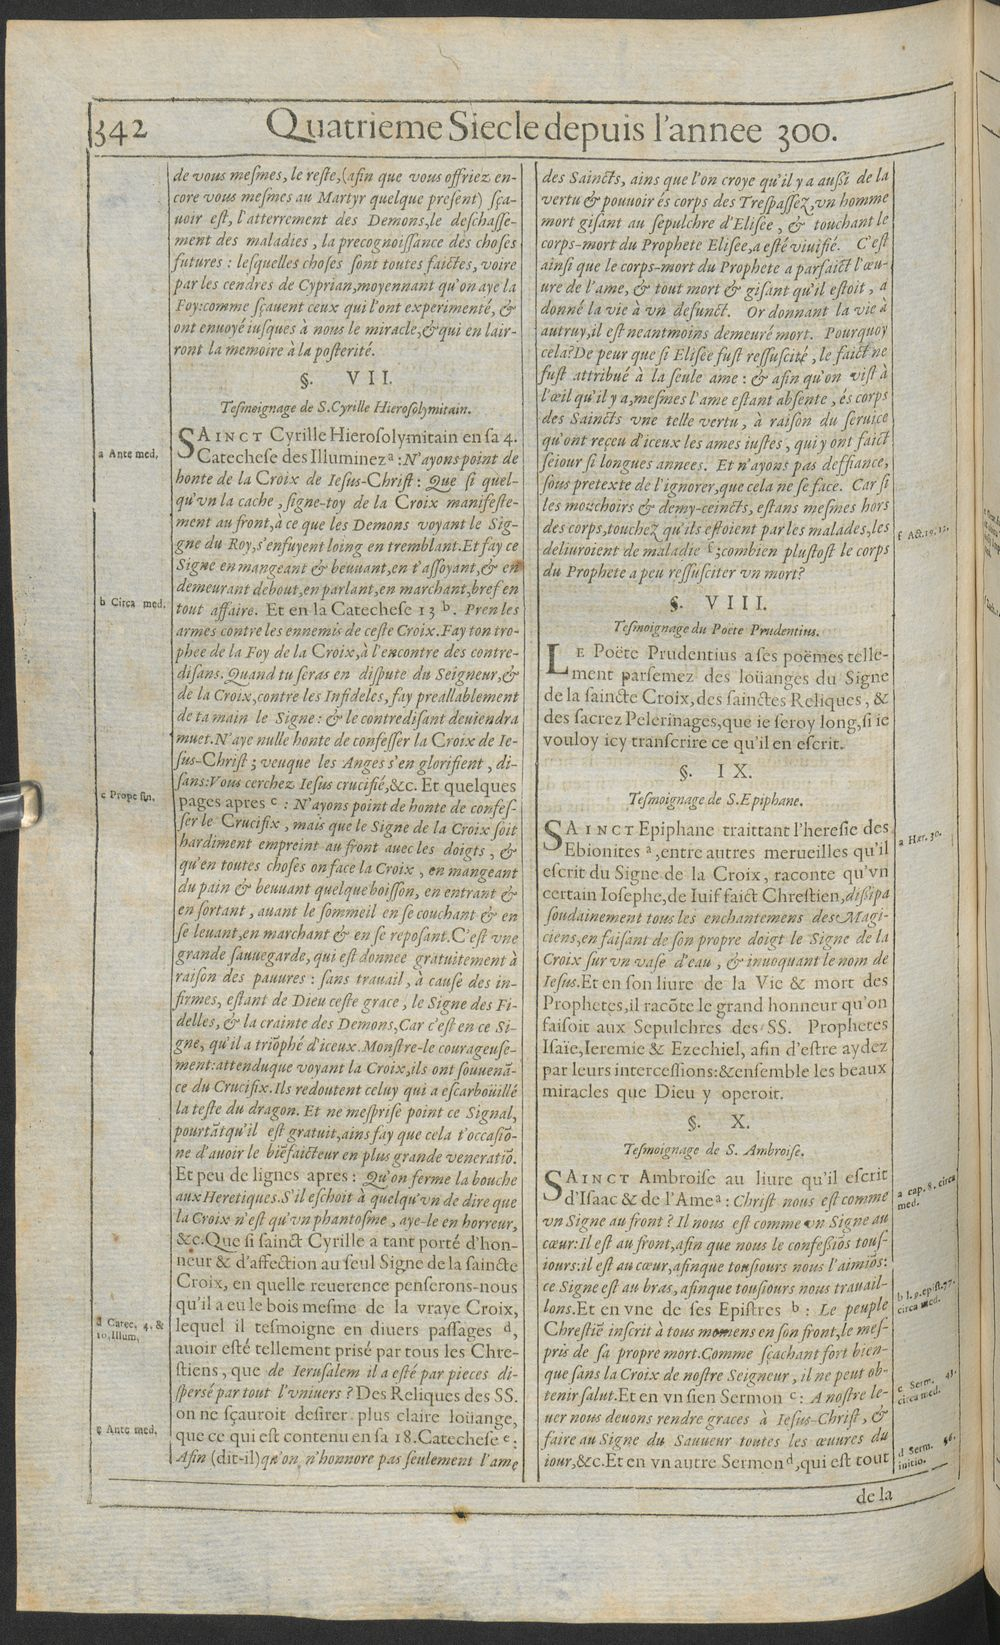 342
Quatrieme Siecle depuis l'annee 300.
de vous meſmes, le reſte, (afin que vous offriez en-
core vous meſmes au Martyr quelque preſent) ſça-
uoir eſt, l'atterrement des Demons, le deſchaſſe-
ment des maladies, la precognoiſſance des choſes
futures : leſquelles choſes ſont toutes faictes, voire
par les cendres de Cyprian, moyennant qu'on aye la
Foy: comme ſçauent ceux qui l'ont experimenté, &
ont enuoyé iuſques à nous le miracle, & qui en lair-
ront la memoire à la poſterité.
§. VII.
Teſmoignage de S. Cyrille Hieroſolymitain.
SAINCT Cyrille Hieroſolymitain en ſa 4.
a Ante med.
Catecheſe des Illuminez a : N'ayons point de
honte de la Croix de Ieſus-Chriſt : Que ſi quel-
qu'vn la cache, ſigne-toy de la Croix manifeſte-
ment au front, à ce que les Demons voyant le Sig-
gne du Roy, s'enfuyent loing en tremblant. Et fay ce
Signe en mangeant & beuuant, en t'aſſoyant, & en
demeurant debout, en parlant, en marchant, bref en
b Circa med.
tout affaire. Et en la Catecheſe 13 b. Pren les
armes contre les ennemis de ceſte Croix. Fay ton tro-
phee de la Foy de la Croix, à l'encontre des contre-
diſans. Quand tu ſeras en diſpute du Seigneur, &
de la Croix, contre les Infideles, fay preallablement
de ta main le Signe : & le contrediſant deuiendra
muet. N'aye nulle honte de confeſſer la Croix de Ie-
ſus-Chriſt ; veuque les Anges s'en glorifient, di-
ſans: Vous cerchez Ieſus crucifié, &c. Et quelques
c Prope fin.
pages apres c : N'ayons point de honte de confeſ-
ſer le Crucifix, mais que le Signe de la Croix ſoit
hardiment empreint au front auec les doigts, &
qu'en toutes choſes on face la Croix, en mangeant
du pain & beuuant quelque boiſſon, en entrant &
en ſortant, auant le ſommeil en ſe couchant & en
ſe leuant, en marchant & en ſe repoſant. C'eſt vne
grande ſauuegarde, qui eſt donnee gratuitement à
raiſon des pauures : ſans trauail, à cauſe des in-
firmes, eſtant de Dieu ceſte grace, le Signe des Fi-
delles, & la crainte des Demons, Car c'eſt en ce Si-
gne, qu'il a triõphé d'iceux. Monſtre-le courageuſe-
ment: attenduque voyant la Croix, ils ont ſouuenã-
ce du Crucifix. Ils redoutent celuy qui a eſcarboüillé
la teſte du dragon. Et ne meſpriſe point ce Signal,
pourtãt qu'il eſt gratuit, ains fay que cela t'occaſiõ-
ne d'auoir le biẽfaicteur en plus grande veneratiõ.
Et peu de lignes apres : Qu'on ferme la bouche
aux Heretiques. S'il eſchoit à quelqu'vn de dire que
la Croix n'eſt qu'vn phantoſme, aye-le en horreur,
&c. Que ſi ſainct Cyrille a tant porté d'hon-
neur & d'affection au ſeul Signe de la ſaincte
Croix, en quelle reuerence penſerons-nous
qu'il a eu le bois meſme de la vraye Croix,
d Catec. 4. &
10. Illum.
lequel il teſmoigne en diuers paſſages d,
auoir eſté tellement priſé par tous les Chre-
ſtiens, que de Ieruſalem il a eſté par pieces di-
ſperſé par tout l'vniuers ? Des Reliques des SS.
on ne ſçauroit deſirer plus claire loüange,
e Ante med.
que ce qui eſt contenu en ſa 18. Catecheſe e :
Afin (dit-il) qu'on n'honnore pas ſeulement l'ame
des Saincts, ains que l'on croye qu'il y a auſſi de la
vertu & pouuoir és corps des Treſpaſſez, vn homme
mort giſant au ſepulchre d'Eliſee, & touchant le
corps-mort du Prophete Eliſee, a eſté viuifié. C'eſt
ainſi que le corps-mort du Prophete a parfaict l'œu-
ure de l'ame, & tout mort & giſant qu'il eſtoit, a
donné la vie à vn defunct. Or donnant la vie à
autruy, il eſt neantmoins demeuré mort. Pourquoy
cela? De peur que ſi Eliſee fuſt reſſuſcité, le faict ne
fuſt attribué à la ſeule ame : & afin qu'on viſt à
l'œil qu'il y a, meſmes l'ame eſtant abſente, és corps
des Saincts vne telle vertu, à raiſon du ſeruice
qu'ont receu d'iceux les ames iuſtes, qui y ont faict
ſeiour ſi longues annees. Et n'ayons pas deffiance,
ſous pretexte de l'ignorer, que cela ne ſe face. Car ſi
les mouchoirs & demy-ceincts, eſtans meſmes hors
des corps, touchez qu'ils eſtoient par les malades, les
f Act. 19. 12.
deliuroient de maladie f ; combien pluſtoſt le corps
du Prophete a peu reſſuſciter vn mort?
§. VIII.
Teſmoignage du Poëte Prudentius.
LE Poëte Prudentius a ſes poëmes telle-
ment parſemez des loüanges du Signe
de la ſaincte Croix, des ſainctes Reliques, &
des ſacrez Pelerinages, que ie ſeroy long, ſi ie
vouloy icy tranſcrire ce qu'il en eſcrit.
§. IX.
Teſmoignage de S. Epiphane.
SAINCT Epiphane traittant l'hereſie des
a Hær. 30.
Ebionites a, entre autres merueilles qu'il
eſcrit du Signe de la Croix, raconte qu'vn
certain Ioſephe, de Iuif faict Chreſtien, diſſipa
ſoudainement tous les enchantemens des Magi-
ciens, en faiſant de ſon propre doigt le Signe de la
Croix ſur vn vaſe d'eau, & inuoquant le nom de
Ieſus. Et en ſon liure de la Vie & mort des
Prophetes, il racõte le grand honneur qu'on
faiſoit aux Sepulchres des SS. Prophetes
Iſaïe, Ieremie & Ezechiel, afin d'eſtre aydez
par leurs interceſſions: & enſemble les beaux
miracles que Dieu y operoit.
§. X.
Teſmoignage de S. Ambroiſe.
SAINCT Ambroiſe au liure qu'il eſcrit
a cap. 8. circa
med.
d'Iſaac & de l'Ame a : Chriſt nous eſt comme
vn Signe au front ? Il nous eſt comme vn Signe au
cœur: Il eſt au front, afin que nous le confeſſiõs touſ-
iours: il eſt au cœur, afin que touſiours nous l'aimiõs:
ce Signe eſt au bras, afin que touſiours nous trauail-
b l. 9. epiſt. 77.
circa med.
lons. Et en vne de ſes Epiſtres b : Le peuple
Chreſtiẽ inſcrit à tous momens en ſon front, le meſ-
pris de ſa propre mort. Comme ſçachant fort bien-
que ſans la Croix de noſtre Seigneur, il ne peut ob-
c Serm. 43.
circa med.
tenir ſalut. Et en vn ſien Sermon c : A noſtre le-
uer nous deuons rendre graces à Ieſus-Chriſt, &
faire au Signe du Sauueur toutes les œuures du
d Serm. 56.
initio.
iour, &c. Et en vn autre Sermon d, qui eſt tout
de la